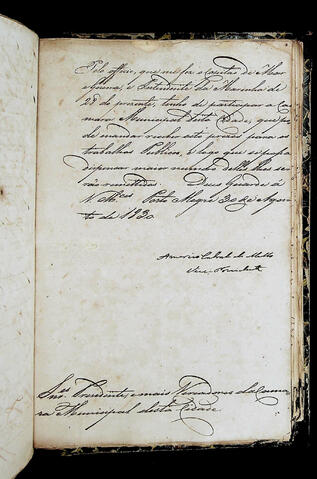 Pelo officio, que me fez o Capitão de Mar
e Guerra, e Intendente da Marinha de
28 do presente, tenho de participar a Ca-
mara Municipal desta Cidade, que pó-
de mandar receber seis prezos para os
trabalhos Publicos, e logo que se possa
dispensar maior numero delles lhes se-
rão remettidos. Deos Guarde á
V. M.ces Porto Alegre 30 de Agos-
to de 1830
Americo Cabral de Mello
Vice Presidente
Snr.es Presidente, e mais Vereadores da Cama-
ra Municipal desta Cidade